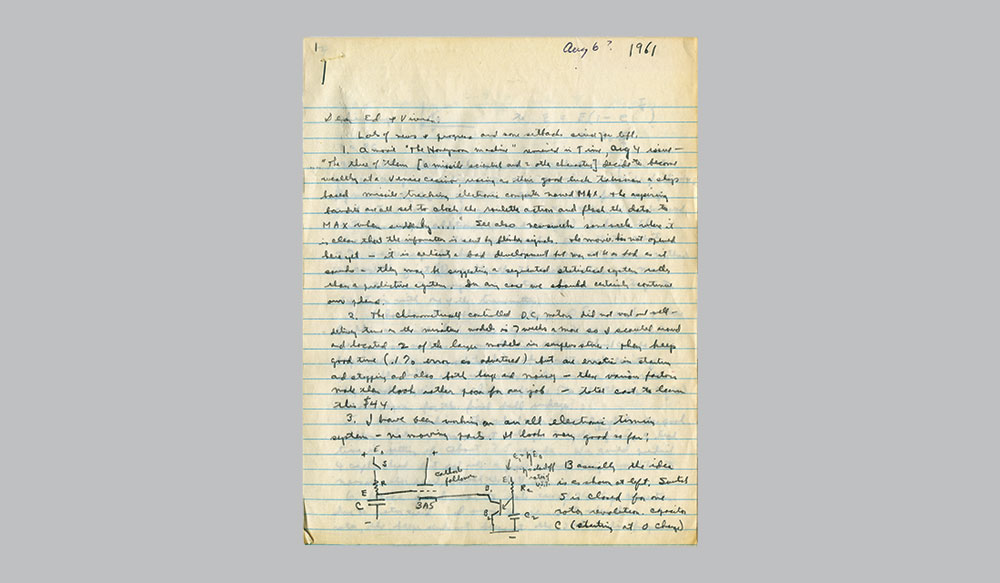 1
Aug 6? 1961
Dear Ed & Vivian
Lots of news & progress and some setbacks since you left.
1. A movie "The Honeymoon machine" reviewed in Time, Aug 4 issue —
"The three of them [a missile scientist and 2 other characters] decide to become
wealthy at a Venice Casino, using as their good luck talisman a ship
based missile-tracking electronic computer named MAX. The conspiring
bandits are all set to clock the roulette action and flash the data to
MAX when suddenly ...." See also newsweek some week when it
is clear that the information is sent by blinker signals. The movie has not opened
here yet — it is certainly a bad development but may not be as bad as it
sounds — they may be suggesting a sequential statistical system rather
than a predictive system. In any case we should certainly continue
our plans.
2. The chronometrically controlled D.C. motors did not work out well —
delivery time on the miniature models is 7 weeks or more so I scouted around
and located 2 of the larger models in surplus stores. They keep
good time (.1% error as advertised) but are erratic in starting
and stopping and also both large and noisy — these various factors
make them look rather poor for our job — total cost to learn
this $44.
3. I have been working on an all electronic timing
system — no moving parts. It looks very good so far!
+ E0
S
R
E
C
−
+
cathode follower
3A5
D1
E1
R2
C2
−
Basically the idea
is as shown at left. Switch
S is closed for one
rotor revolution. capacitor
C (starting at 0 charge)